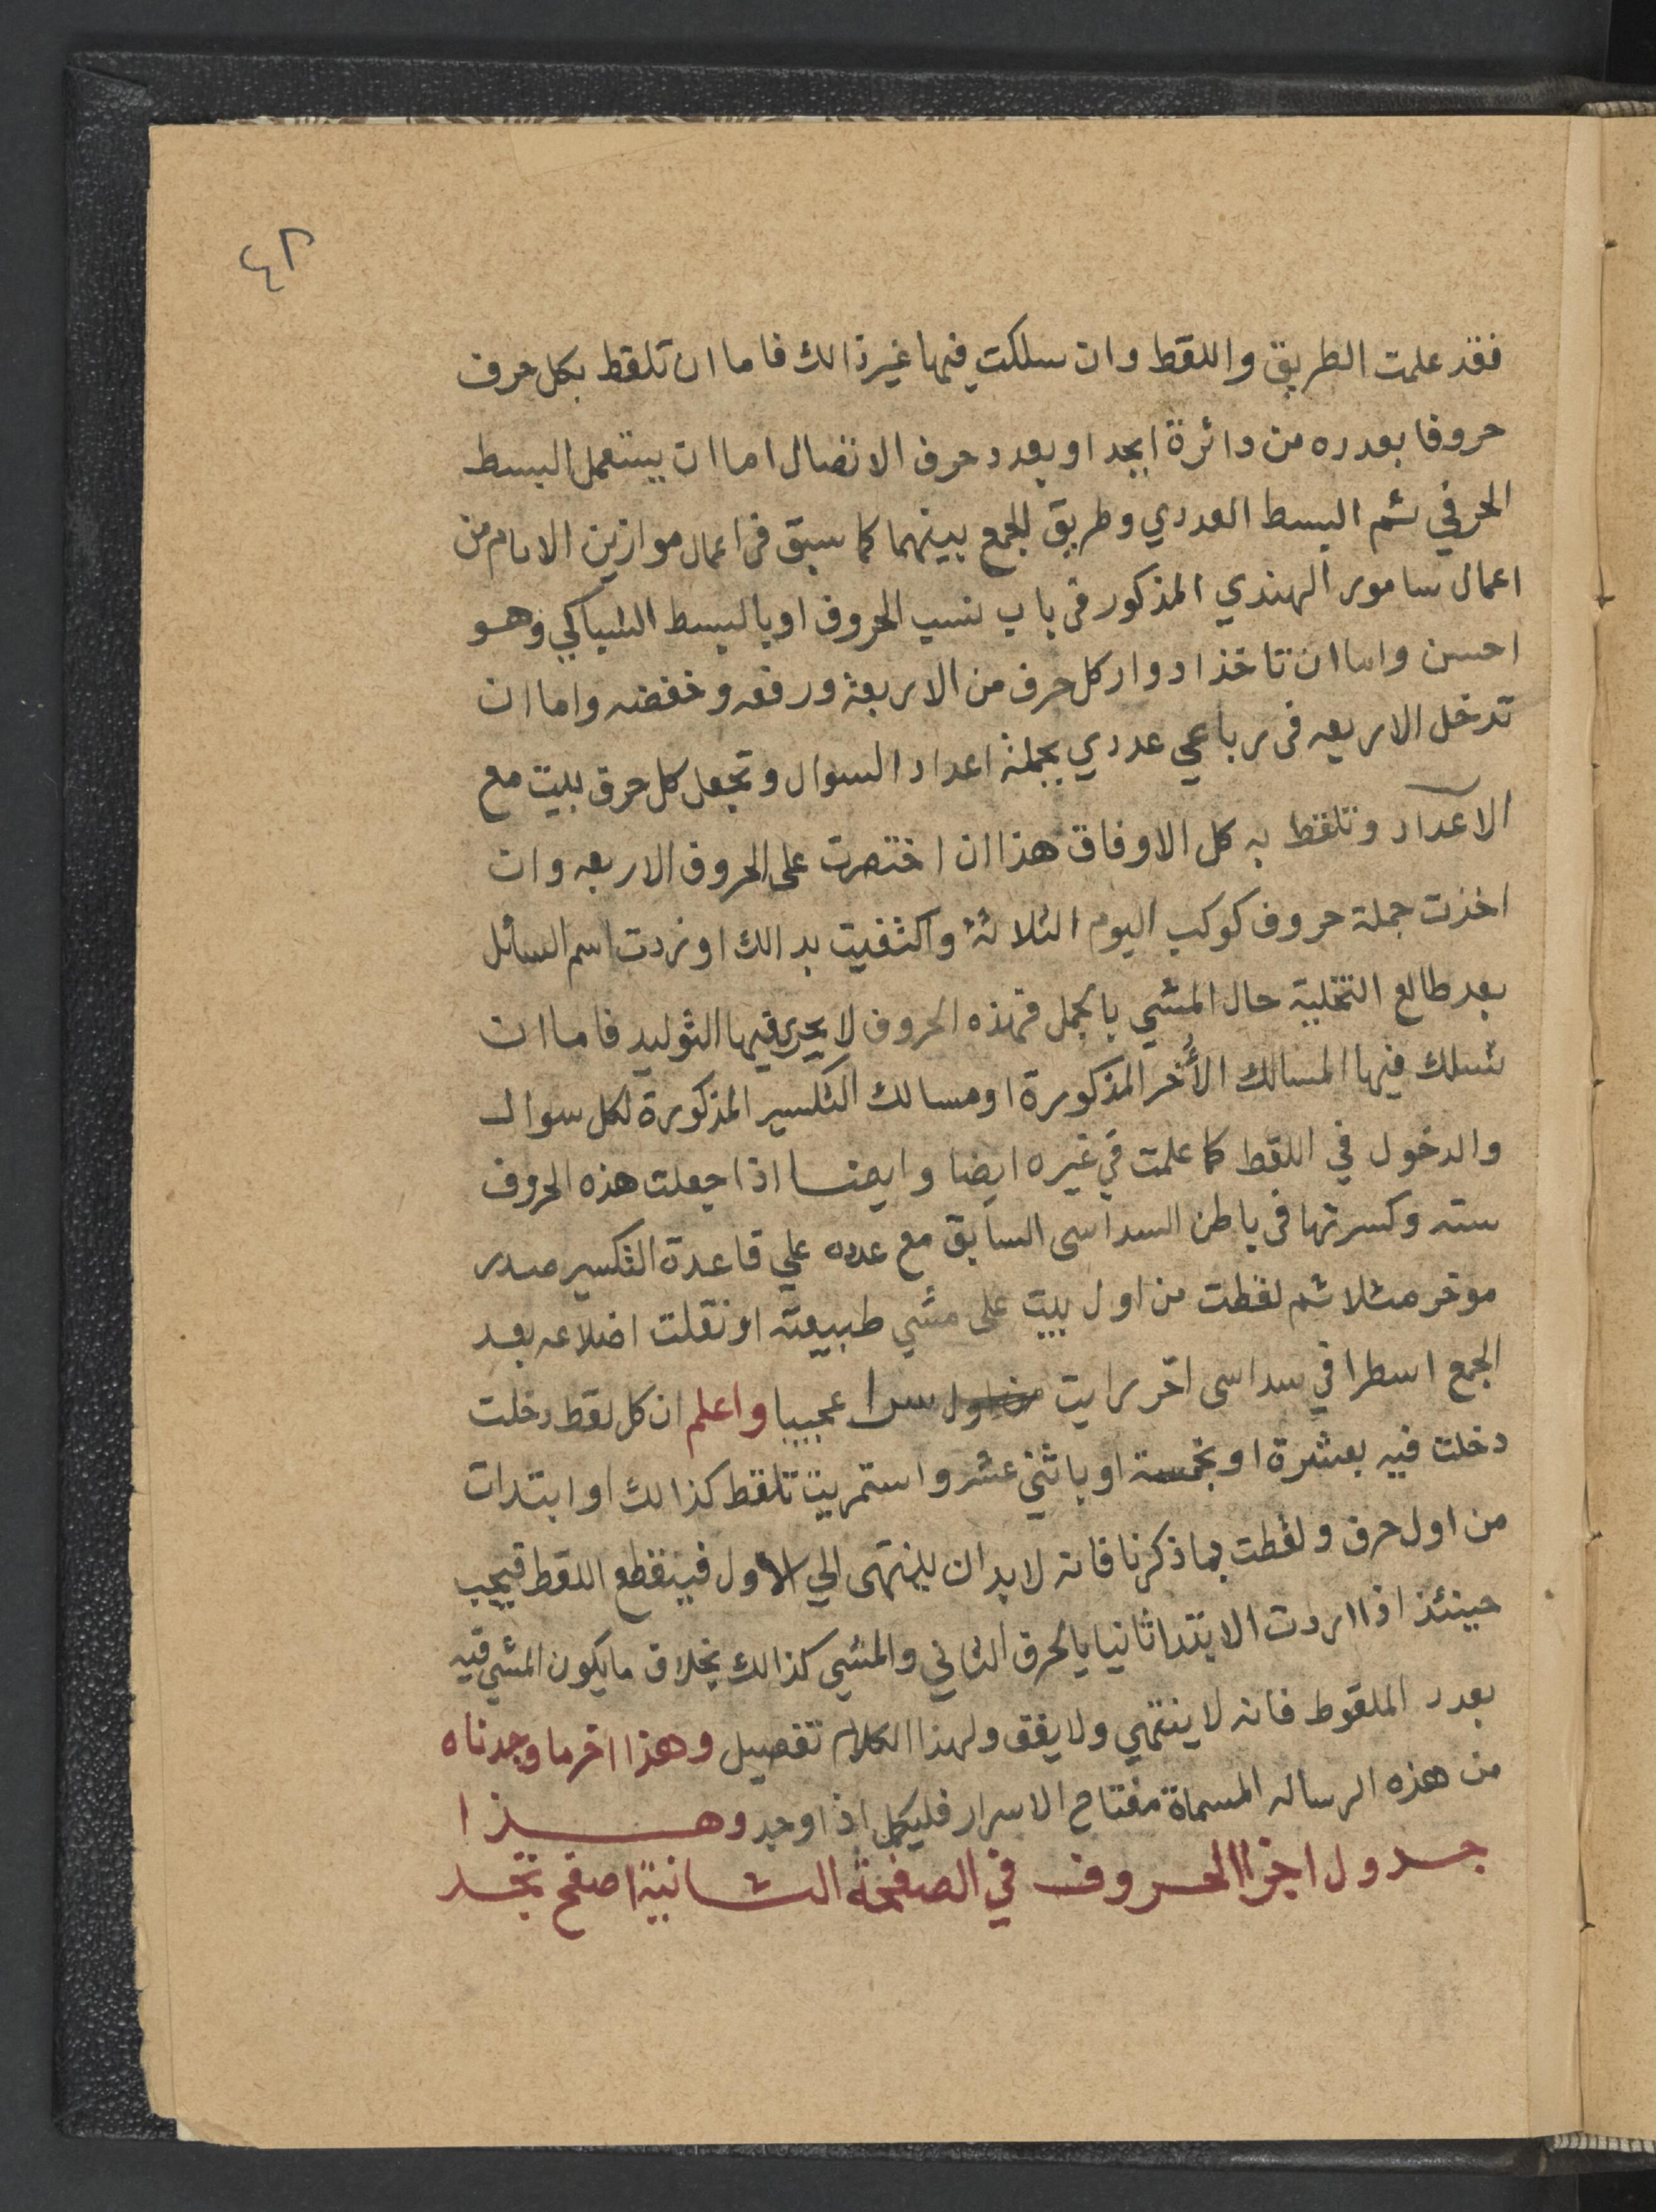 ٤٢
فقد علمت الطريق واللقط وان سلكت فيها غير ذالك فاما ان تلقط بكل حرف
حروفا بعدده من دائرة ابجد او بعدد حرف الاتصال اما ان يستعمل البسط
الحرفي ثم البسط العددي وطريق الجمع بينهما كما سبق في اعمال موازين الايام من
اعمال سامور الهندي المذكور في باب نسب الحروف او بالبسط الشباكي وهو
احسن واما ان تاخذ ادوار كل حرف من الاربعة ورفعه وخفضه واما ان
تدخل الاربعه في رباعي عددي بجملة اعداد السوال وتجعل كل حرف ببيت مع
الاعداد وتلقط به كل الاوفاق هذا ان اختصرت على الحروف الاربعه وان
اخذت جملة حروف كوكب اليوم الثلاثة واكتفيت بذالك او زدت اسم السائل
بعد طالع التخلية حال المشي بالجمل فهذه الحروف لا يجري فيها التوليد فاما ان
تسلك فيها المسالك الأخر المذكورة او مسالك التكسير المذكورة لكل سوال
والدخول في اللقط كما علمت في غيره ايضا وايضا اذا جعلت هذه الحروف
سته وكسرتها في باطن السداسى السابق مع عدده علي قاعدة التكسير صدر
موخر مثلا ثم لقطت من اول بيت على مشي طبيعته او نقلت اضلاعه بعد
الجمع اسطرا في سداسى اخر رايت سرا عجيبا واعلم ان كل لقط دخلت
دخلت فيه بعشرة او بخمسة او باثني عشر واستمريت تلقط كذالك او ابتدات
من اول حرف ولقطت بما ذكرنا فانه لا بد ان ينتهى الي الاول فينقطع اللقط فيجب
حينئذ اذا اردت الابتدا ثانيا بالحرف الثاني والمشي كذالك بخلاف ما يكون المشي فيه
بعدد الملقوط فانه لا ينتهي ولا يفق ولهذا الكلام تفصيل وهذا اخر ما وجدناه
من هذه الرساله المسماة مفتاح الاسرار فليكمل اذا وجد وهذا
جدول اجزا الحروف في الصفحة الثانية اصفح تجد